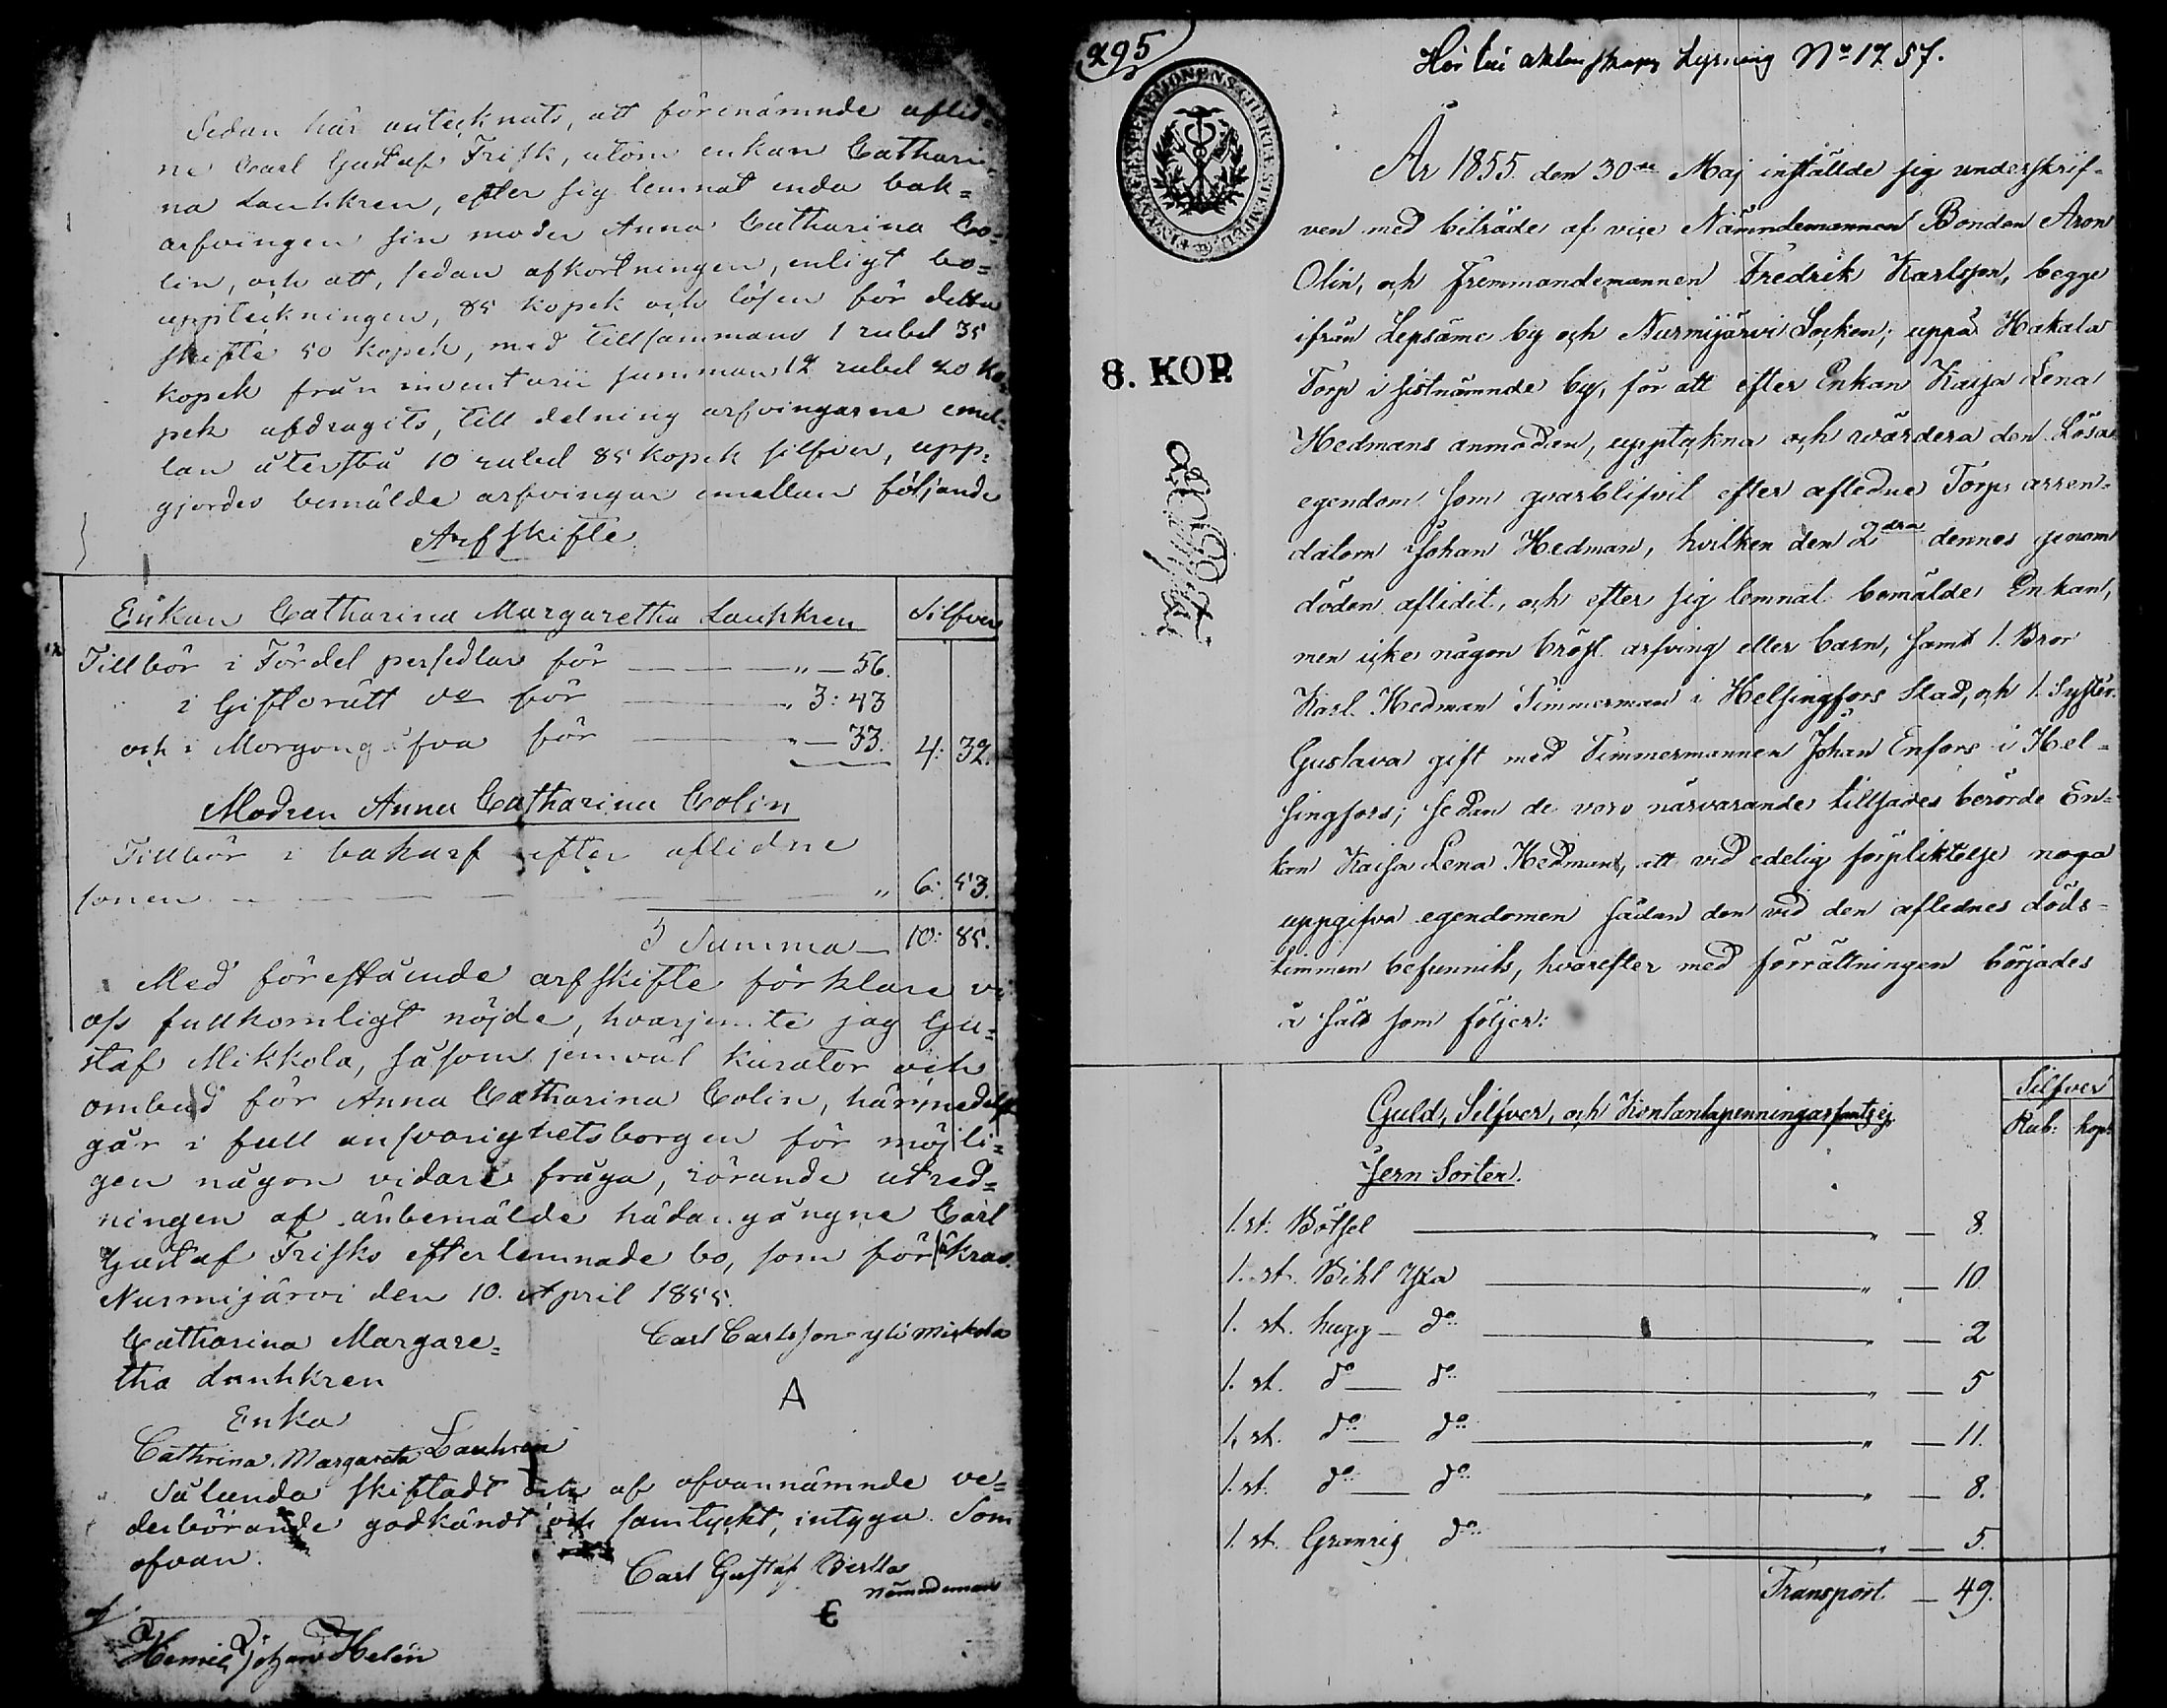 Sedan här antecknats, att förenämnde aflid=
ne Carl Gustaf Frisk, utom enkan Cathari
na Lauhkren, efter sig lemnat enda bak=
arfvingen sin moder Anna Catharina Co=
lin, och att, sedan afkortningen, enligt bo=
uppteckningen, 85 kopek och lösen för detta
skifte 50 kopek, med tillsammans 1 rubel 35
kopek från inventarii summan 12 rubel 20 ko
pek afdragits, till delning arfvingarne emel=
lan återstå 10 rubel 85 kopek silfver, upp=
gjordes bemälde arfvingar emellan följande
Arfskifte
Enkan Catharina Margaretha Lauhkren Silfver
Tillbör i Fördel persedlar för — " — 56.
i Giftorätt do för — " 3: 43
och i Morgongåfva för — " — 33. 4: 32.
Modren Anna Catharina Colin
Tillbör i bakarf efter aflidne
sonen — " 6: 53.
Summa — 10: 85.
Med förestående arfskifte förklare vi
oss fullkomligt nöjde, hvarjemte jag Gu=
staf Mikkola, såsom jemväl kurator och
ombud för Anna Catharina Colin, härmedelst
går i full ansvarighetsborgen för möjli=
gen någon vidare fråga, rörande utred=
ningen af ånbemälde hädangångne Carl
Gustaf Frisks efterlemnade bo, som försäkras.
Nurmijärvi den 10. April 1855.
Catharina Margare=
tha Lauhkren
Enka
Carl Carlsson yli Mikola
A
Cathrina Margareta Lauhren
Sålunda skiftadt och af ofvannämnde ve=
derbörande godkändt och samtyckt, intyga. Som
ofvan.
Carl Gustaf Bertta
Nämndeman
Johan Helén
295
Hör till äktenskaps Lysning No 1757.
8. KOP.
År 1855. den 30de Maj inställde sig underskrif=
ven med biträde af vice Nämndemannen Bonden Aron
Olin, och Fremmandemannen Fredrik Karlsson, begge
ifrån Lepsäme by och Nurmijärvi Socken; uppå Hakala
Torp i sistnämnde by, för att efter Enkan Kaisa Lena
Hedmans anmodan, upptekna och wärdera den Lösa
egendom som qvarblifvit efter aflednes Torps arren=
datorn Johan Hedman, hvilken den 2dra dennes genom
döden aflidit, och efter sig lemnat bemälde Enkan,
men icke någon bröst arfving eller barn, samt 1. Bror
Karl Hedman Timmerman i Helsingfors Stad, och 1. Syster
Gustava gift med Timmermannen Johan Enfors i Hel=
singfors; sedan de voro närvarande tillsades berörde En=
kan Kaisa Lena Hedmans, att vid edelig förpliktelse noga
uppgifva egendomen sådan den vid den aflednes döds=
timmen befunnits, hvarefter med förrättningen börjades
å sätt som följer:
Silfver
Guld, Silfver, och Kontantapenningar fants ej. Rub: kop:
Jern Sorter.
1. st: Bötsel — " — 8.
1. st. Bihl Yxa — " — 10
1. st. hugg — do — " — 2
1. st. do — do — " — 5
1. st. do — do — " — 11.
1. st. do — do — " — 8.
1. st. Granrig do — " — 5.
Transport — 49.